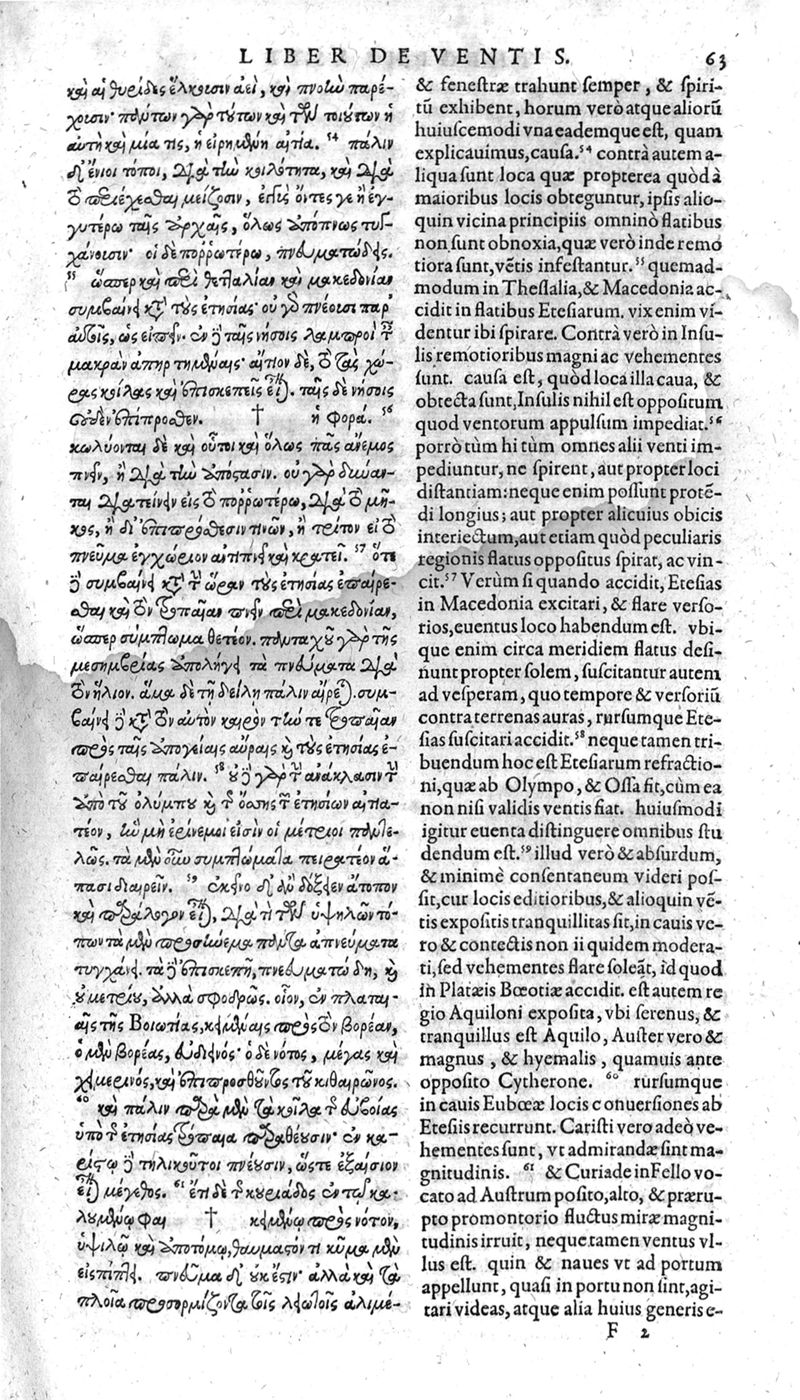 LIBER DE VENTIS. 63
καὶ αἱ θυρίδες ἕλκουσιν ἀεὶ, καὶ πνοὴν παρέ-
χουσιν· πάντων γὰρ τούτων καὶ τῶν τοιούτων ἡ
αὐτὴ καὶ μία τις, ἡ εἰρημένη αἰτία. 54 πάλιν
δ' ἔνιοι τόποι, διὰ τὴν κοιλότητα, καὶ διὰ
τὸ περιέχεσθαι μείζοσιν, ὄντες γε ἢ ἐγ-
γυτέρω ταῖς ἀρχαῖς, ὅλως ἄποπνοι τυγ-
χάνουσιν· οἱ δὲ ποῤῥωτέρω, πνευματώδεις.
55 ὥσπερ καὶ περὶ θετταλίαν καὶ μακεδονίαν
συμβαίνει κατὰ τοὺς ἐτησίας· οὐ γὰρ πνέουσι παρ'
αὐτοῖς, ὡς εἰπεῖν. ἐν δὲ ταῖς νήσοις λαμπροὶ
μακρὰν ἀπηρτημέναις· αἴτιον δὲ, τὸ τὰς χώ-
ρας κοίλας καὶ ἐπισκεπεῖς εἶναι. ταῖς δὲ νήσοις
οὐδὲν ἐπίπροσθεν. † ἡ φορά. 56
κωλύονται δὲ καὶ οὗτοι καὶ ὅλως πᾶς ἄνεμος
πνεῖν, ἢ διὰ τὴν ἀπόστασιν. οὐ γὰρ δύναν-
ται διατείνειν εἰς τὸ ποῤῥωτέρω, διὰ τὸ μῆ-
κος, ἢ δι' ἐπιπρόσθεσίν τινων, ἢ τρίτον εἰ τὸ
πνεῦμα ἐγχώριον ἀντιπνεῖ καὶ κρατεῖ. 57 ὅτε
δὲ συμβαίνει κατὰ τὴν ὥραν τοὺς ἐτησίας ἐπαίρε-
σθαι καὶ τὸν τροπαῖαν πνεῖν περὶ μακεδονίαν,
ὥσπερ σύμπτωμα θετέον. πανταχοῦ γὰρ τῆς
μεσημβρίας ἀπολήγει τὰ πνεύματα διὰ
τὸν ἥλιον. ἅμα δὲ τῇ δείλῃ πάλιν αἴρεται. συμ-
βαίνει δὲ κατὰ τὸν αὐτὸν καιρὸν τήν τε τροπαίαν
πρὸς ταῖς ἀπογείαις αὔραις καὶ τοὺς ἐτησίας ἐ-
παίρεσθαι πάλιν. 58 οὐ γὰρ τὴν ἀνάκλασιν τὴν
ἀπὸ τοῦ ὀλύμπου καὶ τῆς ὄσσης τῶν ἐτησίων αἰτια-
τέον, παντε-
λῶς. τὰ μὲν οὖν συμπτώματα πειρατέον ἅ-
πασι διαιρεῖν. 59 ἐκεῖνο δ' ἂν δόξειεν ἄτοπον
καὶ παράλογον εἶναι, διὰ τί τῶν ὑψηλῶν τό-
πων τὰ μὲν προσήνεμα πάντα ἀπνεύματα
τυγχάνει. τὰ δὲ ἐπισκεπῆ, πνευματώδη, καὶ
οὐ μετρίως, ἀλλὰ σφοδρῶς. οἷον, ἐν πλαται-
αῖς τῆς Βοιωτίας, κειμέναις πρὸς τὸν βορέαν,
ὁ μὲν βορέας, εὐδιεινός· ὁ δὲ νότος, μέγας καὶ
χειμερινός, καὶ ἐπιπροσθοῦντος τοῦ κιθαιρῶνος.
60 καὶ πάλιν παρὰ μὲν τὰ κοῖλα τῆς εὐβοίας
ὑπὸ τῶν ἐτησίας τροπαία παραθέουσιν· ἐν κα-
ρύστῳ δὲ τηλικοῦτοι πνέουσιν, ὥστε ἐξαίσιον
εἶναι μέγεθος. 61 ἔτι δὲ τῆς κουριάδος ἐν τῷ κα-
λουμένῳ φαι † κειμένῳ πρὸς νότον,
ὑψηλῷ καὶ ἀποτόμῳ, θαυμαστόν τι κῦμα μὲν
εἰσπίπτει. πνεῦμα δ' οὐκ ἔστιν· ἀλλὰ καὶ τὰ
πλοῖα προσορμίζονται τοῖς ἀλιμέ-
& fenestræ trahunt semper, & spiri-
tū exhibent, horum verò atque aliorū
huiuscemodi vna eademque est, quam
explicauimus, causa.54 contrà autem a-
liqua sunt loca quæ propterea quòd à
maioribus locis obteguntur, ipsis alio-
quin vicina principiis omninò flatibus
non sunt obnoxia, quæ verò inde remo
tiora sunt, vētis infestantur.55 quemad-
modum in Thessalia, & Macedonia ac-
cidit in flatibus Etesiarum. vix enim vi-
dentur ibi spirare. Contrà verò in Insu-
lis remotioribus magni ac vehementes
sunt. causa est, quòd loca illa caua, &
obtecta sunt, Insulis nihil est oppositum
quod ventorum appulsum impediat.56
porrò tùm hi tùm omnes alii venti im-
pediuntur, ne spirent, aut propter loci
distantiam: neque enim possunt protē-
di longius; aut propter alicuius obicis
interiectum, aut etiam quòd peculiaris
regionis flatus oppositus spirat, ac vin-
cit.57 Verùm si quando accidit, Etesias
in Macedonia excitari, & flare verso-
rios, euentus loco habendum est. vbi-
que enim circa meridiem flatus desi-
nunt propter solem, suscitantur autem
ad vesperam, quo tempore & versoriū
contra terrenas auras, rursumque Ete-
sias suscitari accidit.58 neque tamen tri-
buendum hoc est Etesiarum refractio-
ni, quæ ab Olympo, & Ossa fit, cùm ea
non nisi validis ventis fiat. huiusmodi
igitur euenta distinguere omnibus stu
dendum est.59 illud verò & absurdum,
& minimè consentaneum videri pos-
sit, cur locis editioribus, & alioquin vē-
tis expositis tranquillitas sit, in cauis ve-
ro & contectis non ii quidem modera-
ti, sed vehementes flare soleāt, id quod
in Platæis Bœotiæ accidit. est autem re
gio Aquiloni exposita, vbi serenus, &
tranquillus est Aquilo, Auster vero &
magnus, & hyemalis, quamuis ante
opposito Cytherone. 60 rursumque
in cauis Eubœæ locis conuersiones ab
Etesiis recurrunt. Caristi vero adeò ve-
hementes sunt, vt admirandæ sint ma-
gnitudinis. 61 & Curiade in Fello vo-
cato ad Austrum posito, alto, & præru-
pto promontorio fluctus miræ magni-
tudinis irruit, neque tamen ventus vl-
lus est. quin & naues vt ad portum
appellunt, quasi in portu non sint, agi-
tari videas, atque alia huius generis e-
F 2